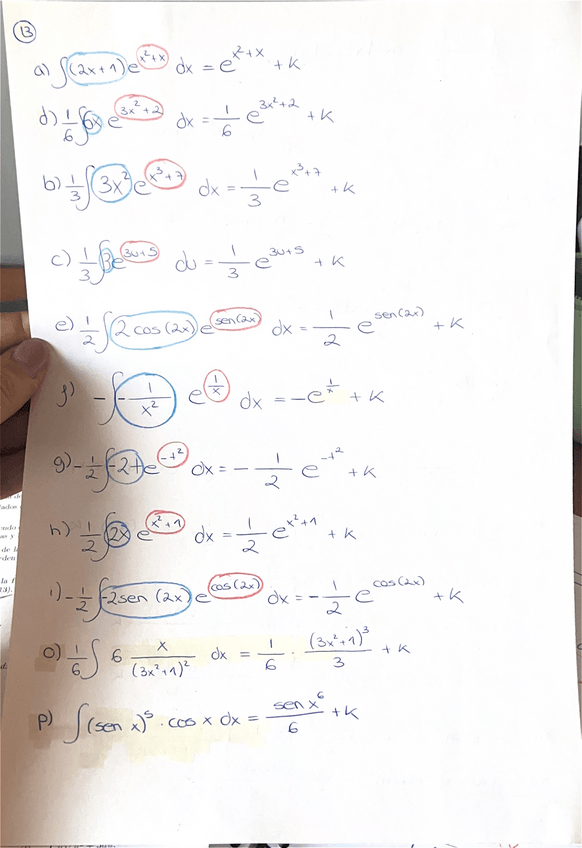 13
a) ∫(2x+1)e^(x²+x) dx = e^(x²+x) + K
d) 1/6 ∫6x e^(3x²+2) dx = 1/6 e^(3x²+2) + K
b) 1/3 ∫3x² e^(x³+7) dx = 1/3 e^(x³+7) + K
c) 1/3 ∫3e^(3u+5) du = 1/3 e^(3u+5) + K
e) 1/2 ∫2 cos(2x) e^(sen(2x)) dx = 1/2 e^(sen(2x)) + K
f) -∫-1/x² e^(1/x) dx = -e^(1/x) + K
g) -1/2 ∫-2t e^(-t²) dx = -1/2 e^(-t²) + K
h) 1/2 ∫2x e^(x²+1) dx = 1/2 e^(x²+1) + K
i) -1/2 ∫-2sen(2x) e^(cos(2x)) dx = -1/2 e^(cos(2x)) + K
o) 1/6 ∫ 6 x/(3x²+1)² dx = 1/6 · (3x²+1)³/3 + K
p) ∫(sen x)⁵ · cos x dx = sen x⁶/6 + K